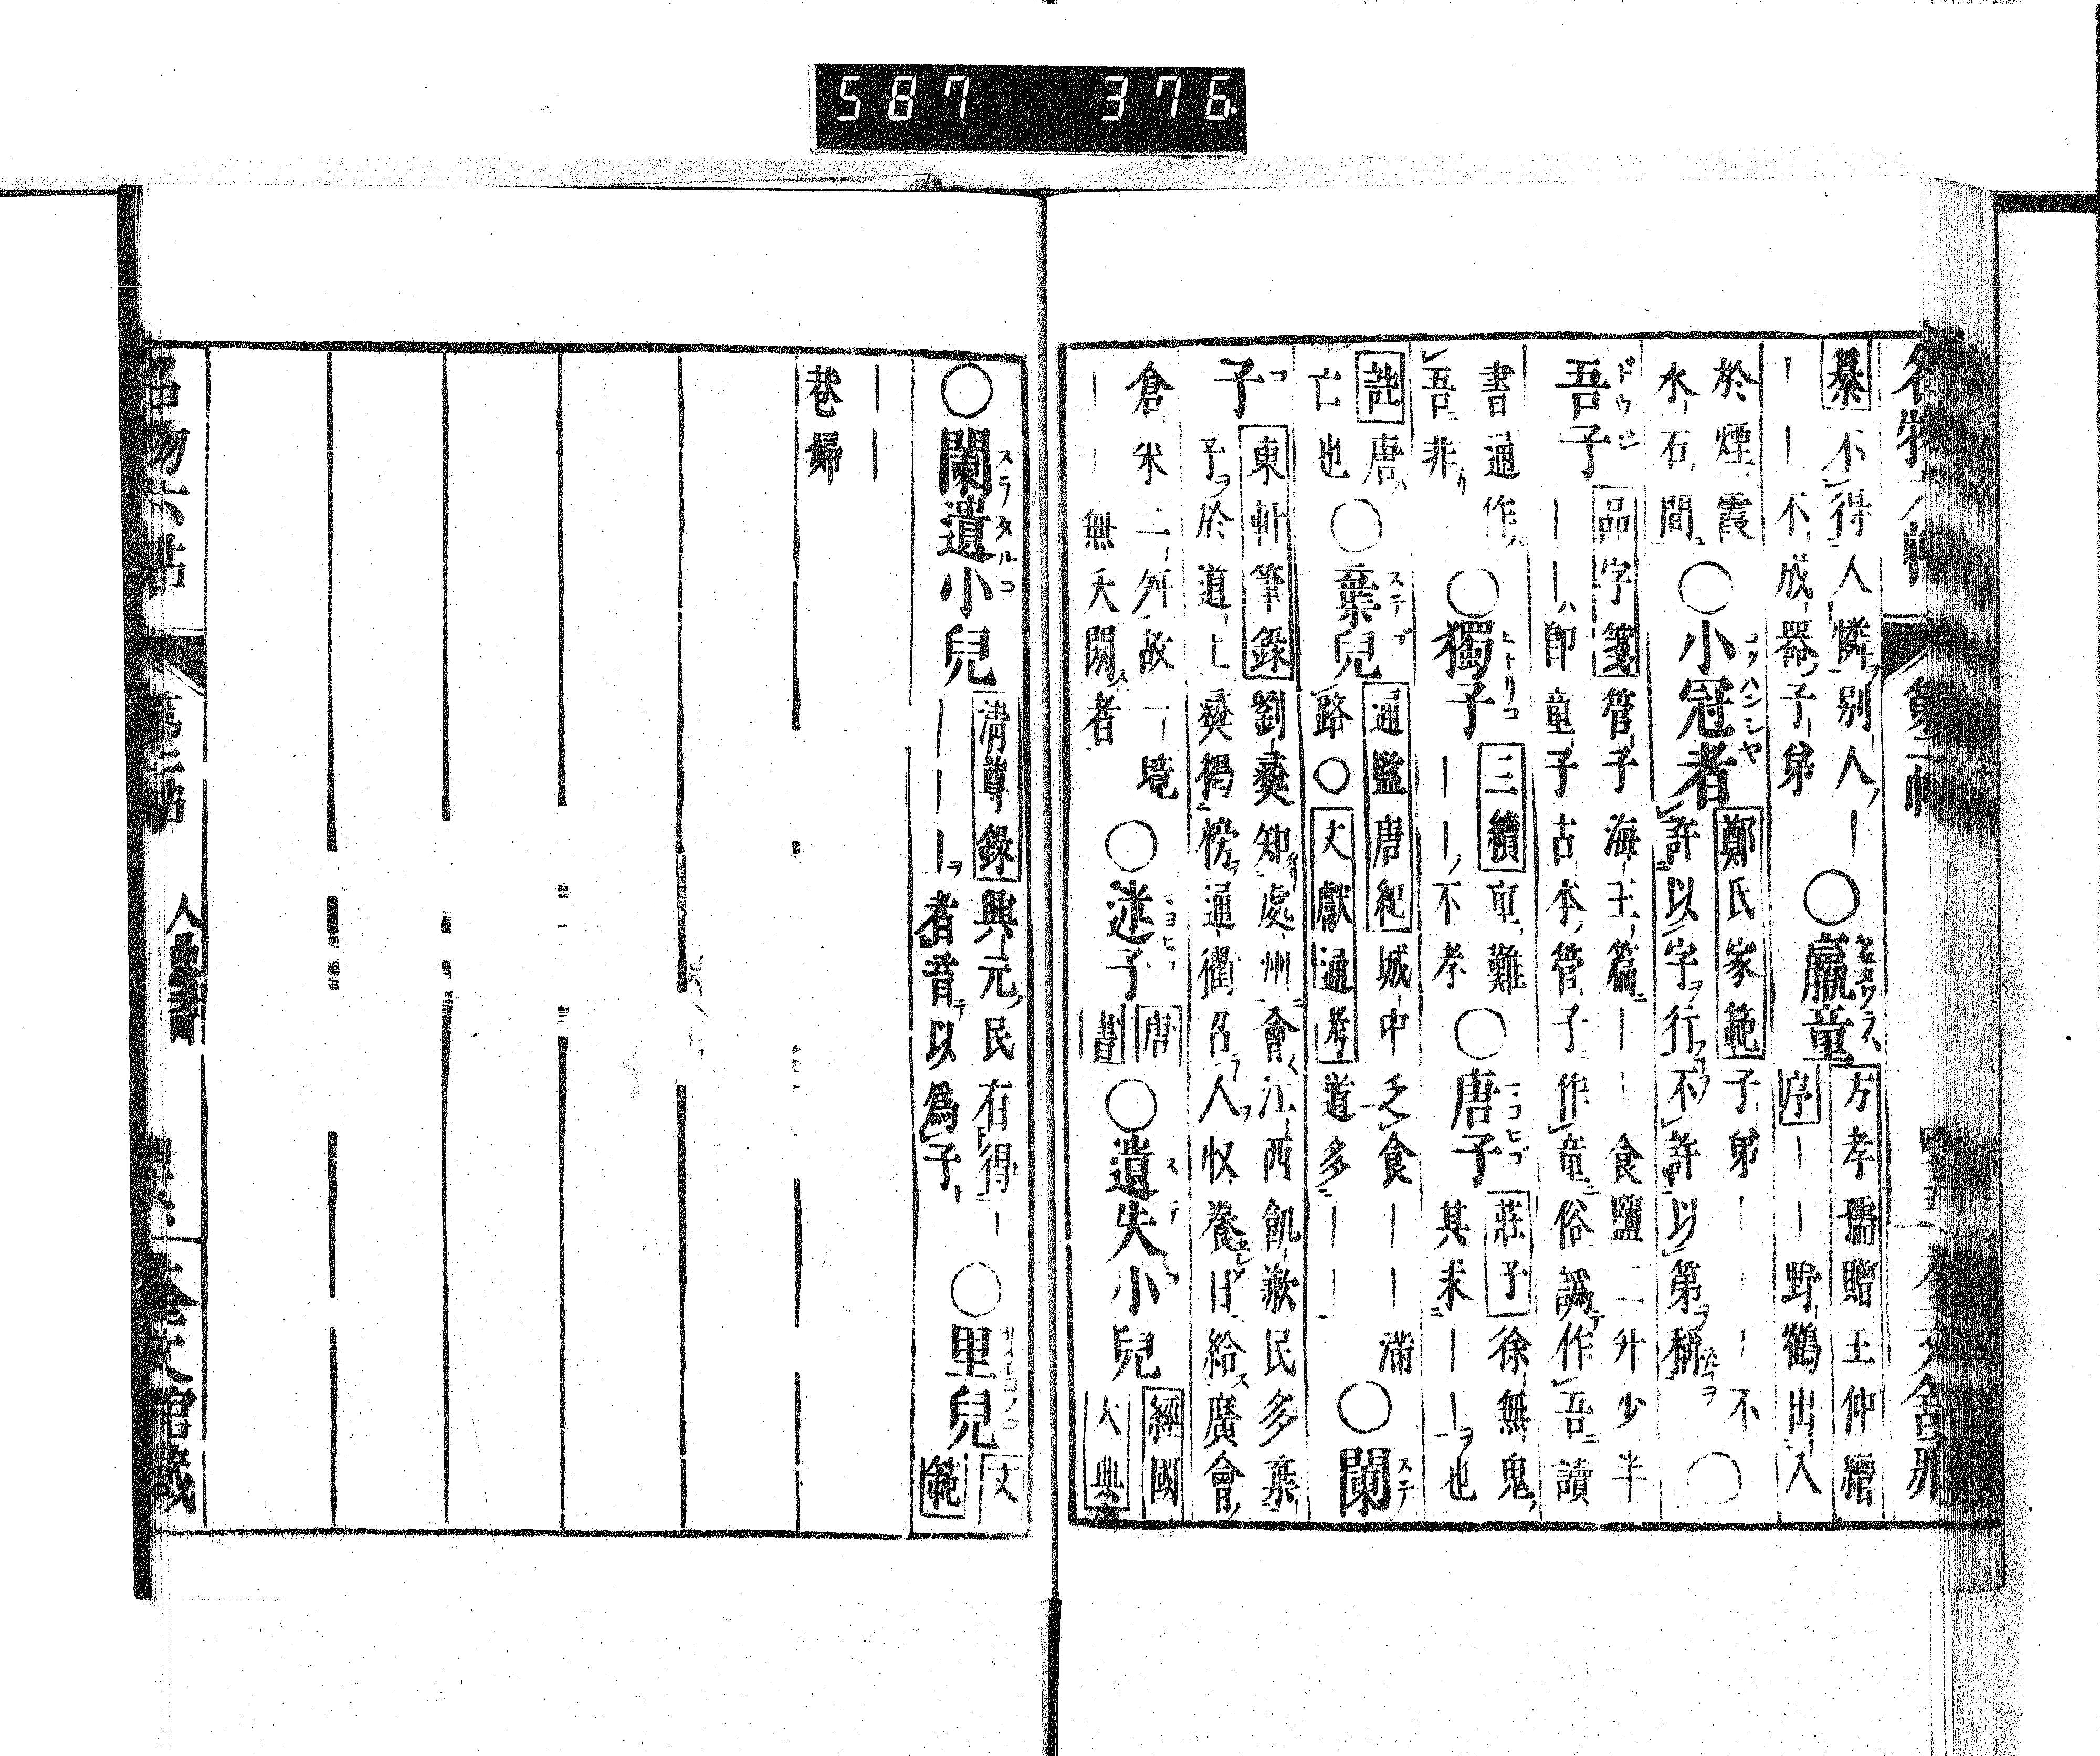 587 376
名物六帖 第二帖
纂不得人憐別人ノ｜
｜｜不成器子弟
○羸童
方孝孺贈王仲縉
序｜｜野鶴出入
於煙霞
水石間
○小冠者
鄭氏家範子弟｜｜｜不
許以字行不許以第稱
○
吾子
品字箋管子海王篇｜｜食鹽二升少半
｜｜ハ即童子古本管子作童俗譌作吾讀
書通作
吾非
○獨子
三續車難
｜｜不孝
○唐子
莊子徐無鬼
其求｜｜也
註唐
亡也
○棄兒
通鑑唐紀城中乏食｜｜滿
路○文獻通考道多｜｜
○闌
子
東軒筆錄劉彝知處州會江西飢歉民多棄
子於道上彝揭榜通衢召人收養日給廣會
倉米二升故一境
｜｜無夭閼者
○迷子
唐書
○遺失小兒
經國大典
○闌遺小兒
清尊錄興元民有得｜
｜｜｜者育以爲子
○里兒
文範
｜｜
巷婦
名物六帖 第二帖 人品